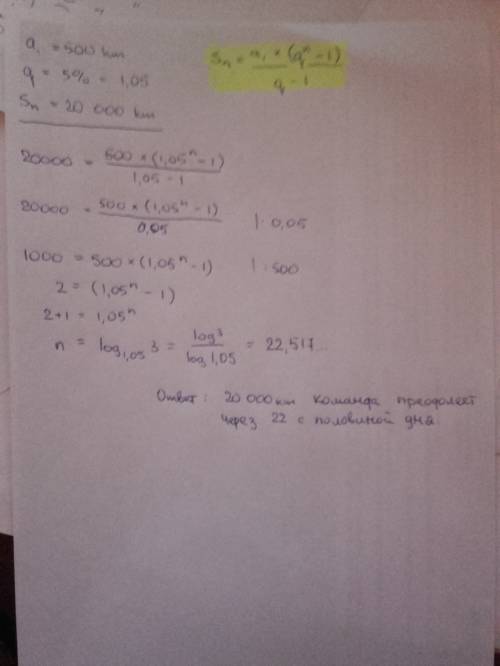 a₁ = 500 km
q = 5% = 1,05
Sₙ = 20 000 km
Sₙ = a₁ × (qⁿ - 1) / q - 1
20000 = 500 × (1,05ⁿ - 1) / 1,05 - 1
20000 = 500 × (1,05ⁿ - 1) / 0,05 | · 0,05
1000 = 500 × (1,05ⁿ - 1) | : 500
2 = (1,05ⁿ - 1)
2+1 = 1,05ⁿ
n = log₁,₀₅ 3 = log 3 / log 1,05 = 22,517...
Ответ: 20 000 km команда преодолеет
через 22 с половиной дна